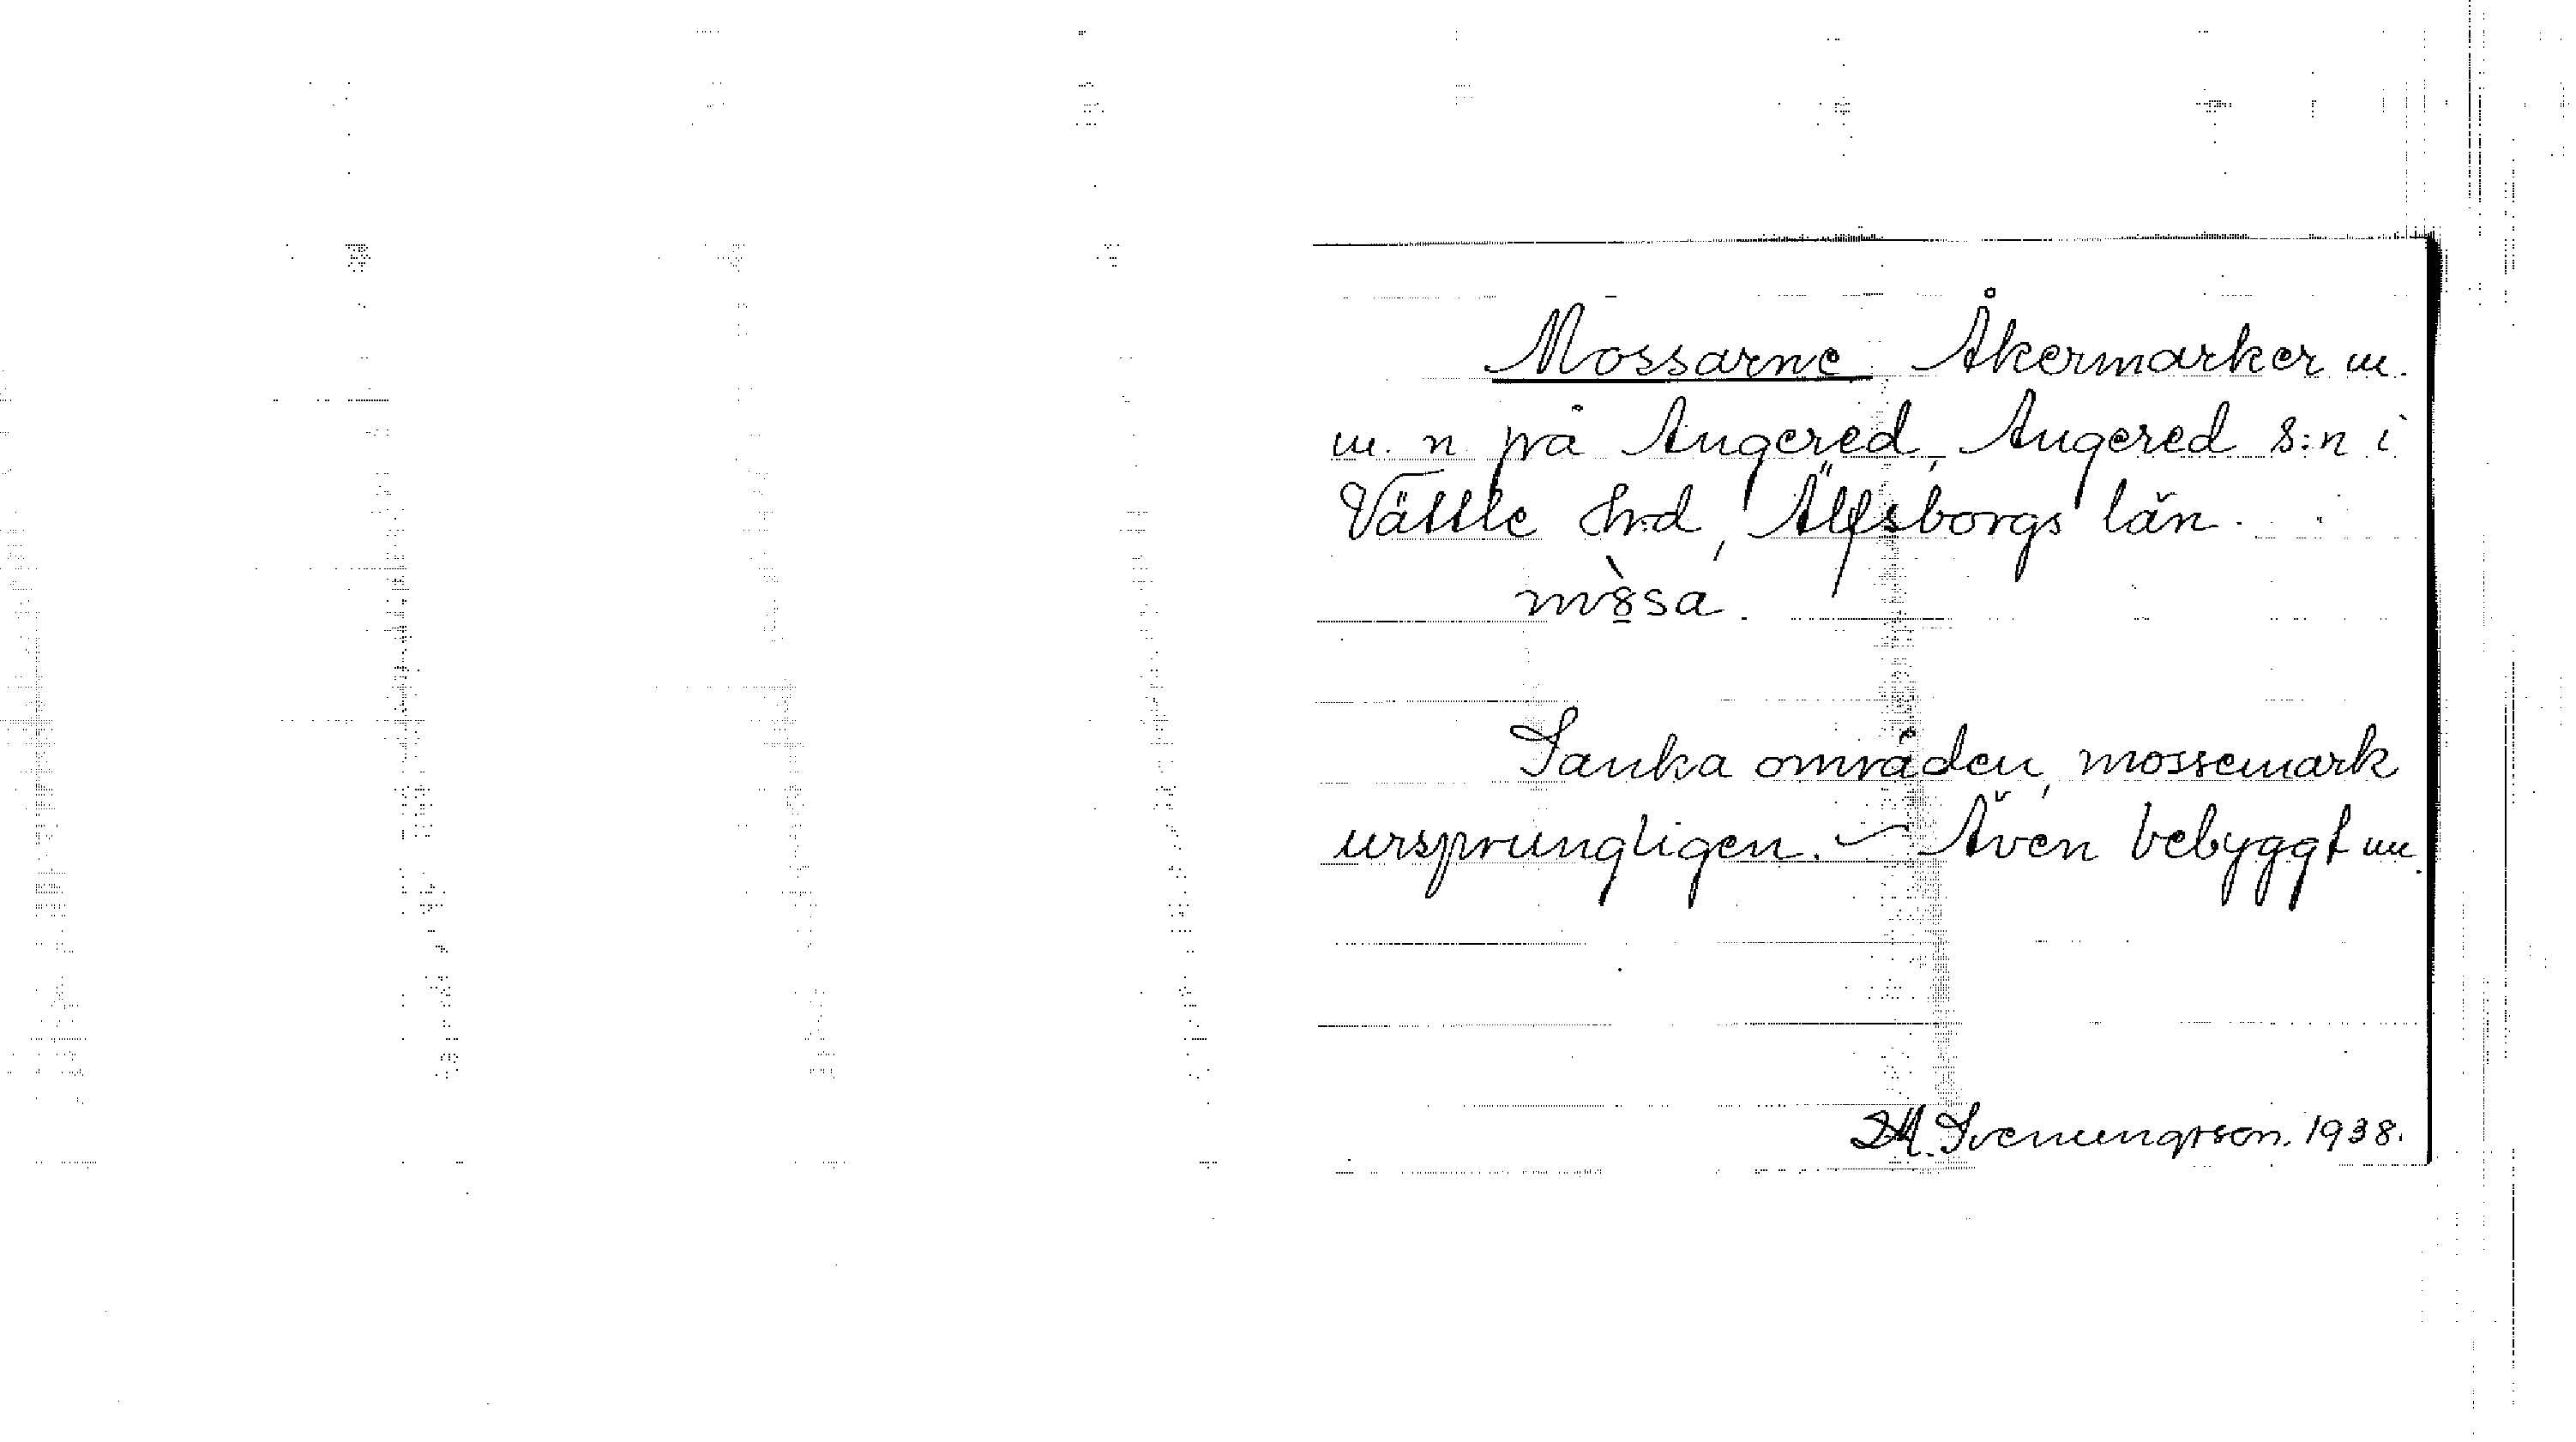 Mossarne Åkermarker m.
m. n på Angered, Angered s:n i
Vättle hd, Älfsborgs län.
Sanka områden, mossemark
ursprungligen. – Även bebyggt nu.
Svenungsson. 1938.